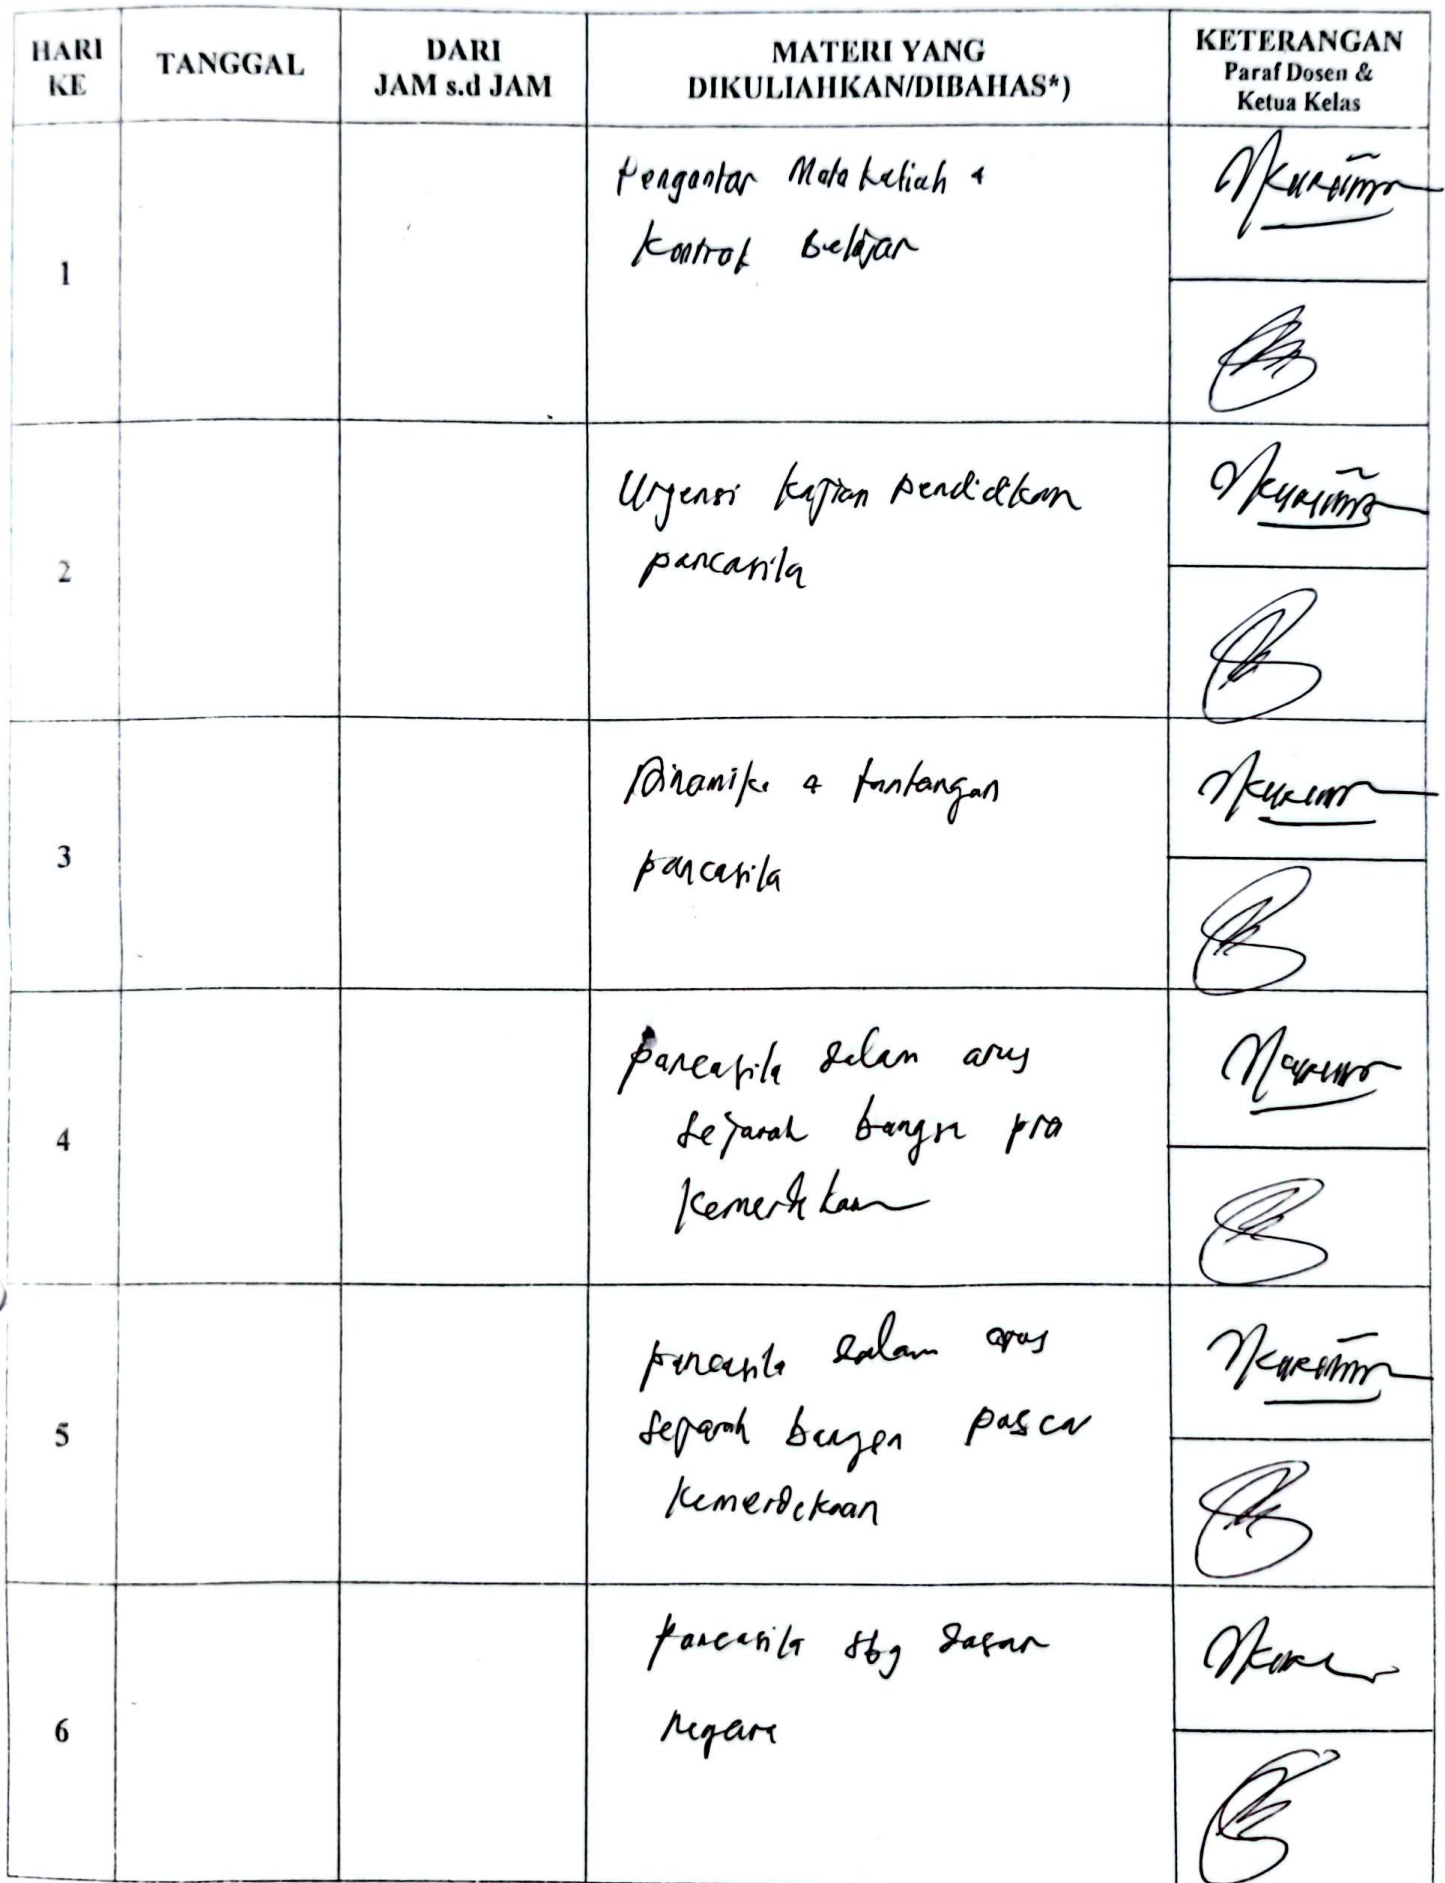 HARI KE
TANGGAL
DARI
JAM s.d JAM
MATERI YANG
DIKULIAHKAN/DIBAHAS*)
KETERANGAN
Paraf Dosen &
Ketua Kelas
1
Pengantar Mata kuliah &
Kontrak Belajar
2
Urgensi kajian pendidikan
pancasila
3
Dinamika & tantangan
pancasila
4
pancasila dalam arus
sejarah bangsa pra
Kemerdekaan
5
pancasila dalam arus
sejarah bangsa pasca
Kemerdekaan
6
Pancasila sbg dasar
negara